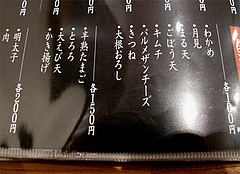 ・わかめ
・月見
・まる天
・ごぼう天
・キムチ
・パルメザンチーズ
・きつね
・大根おろし
各150円
・半熟たまご
・とろろ
・大えび天
・かき揚げ
各200円
・明太子
・肉